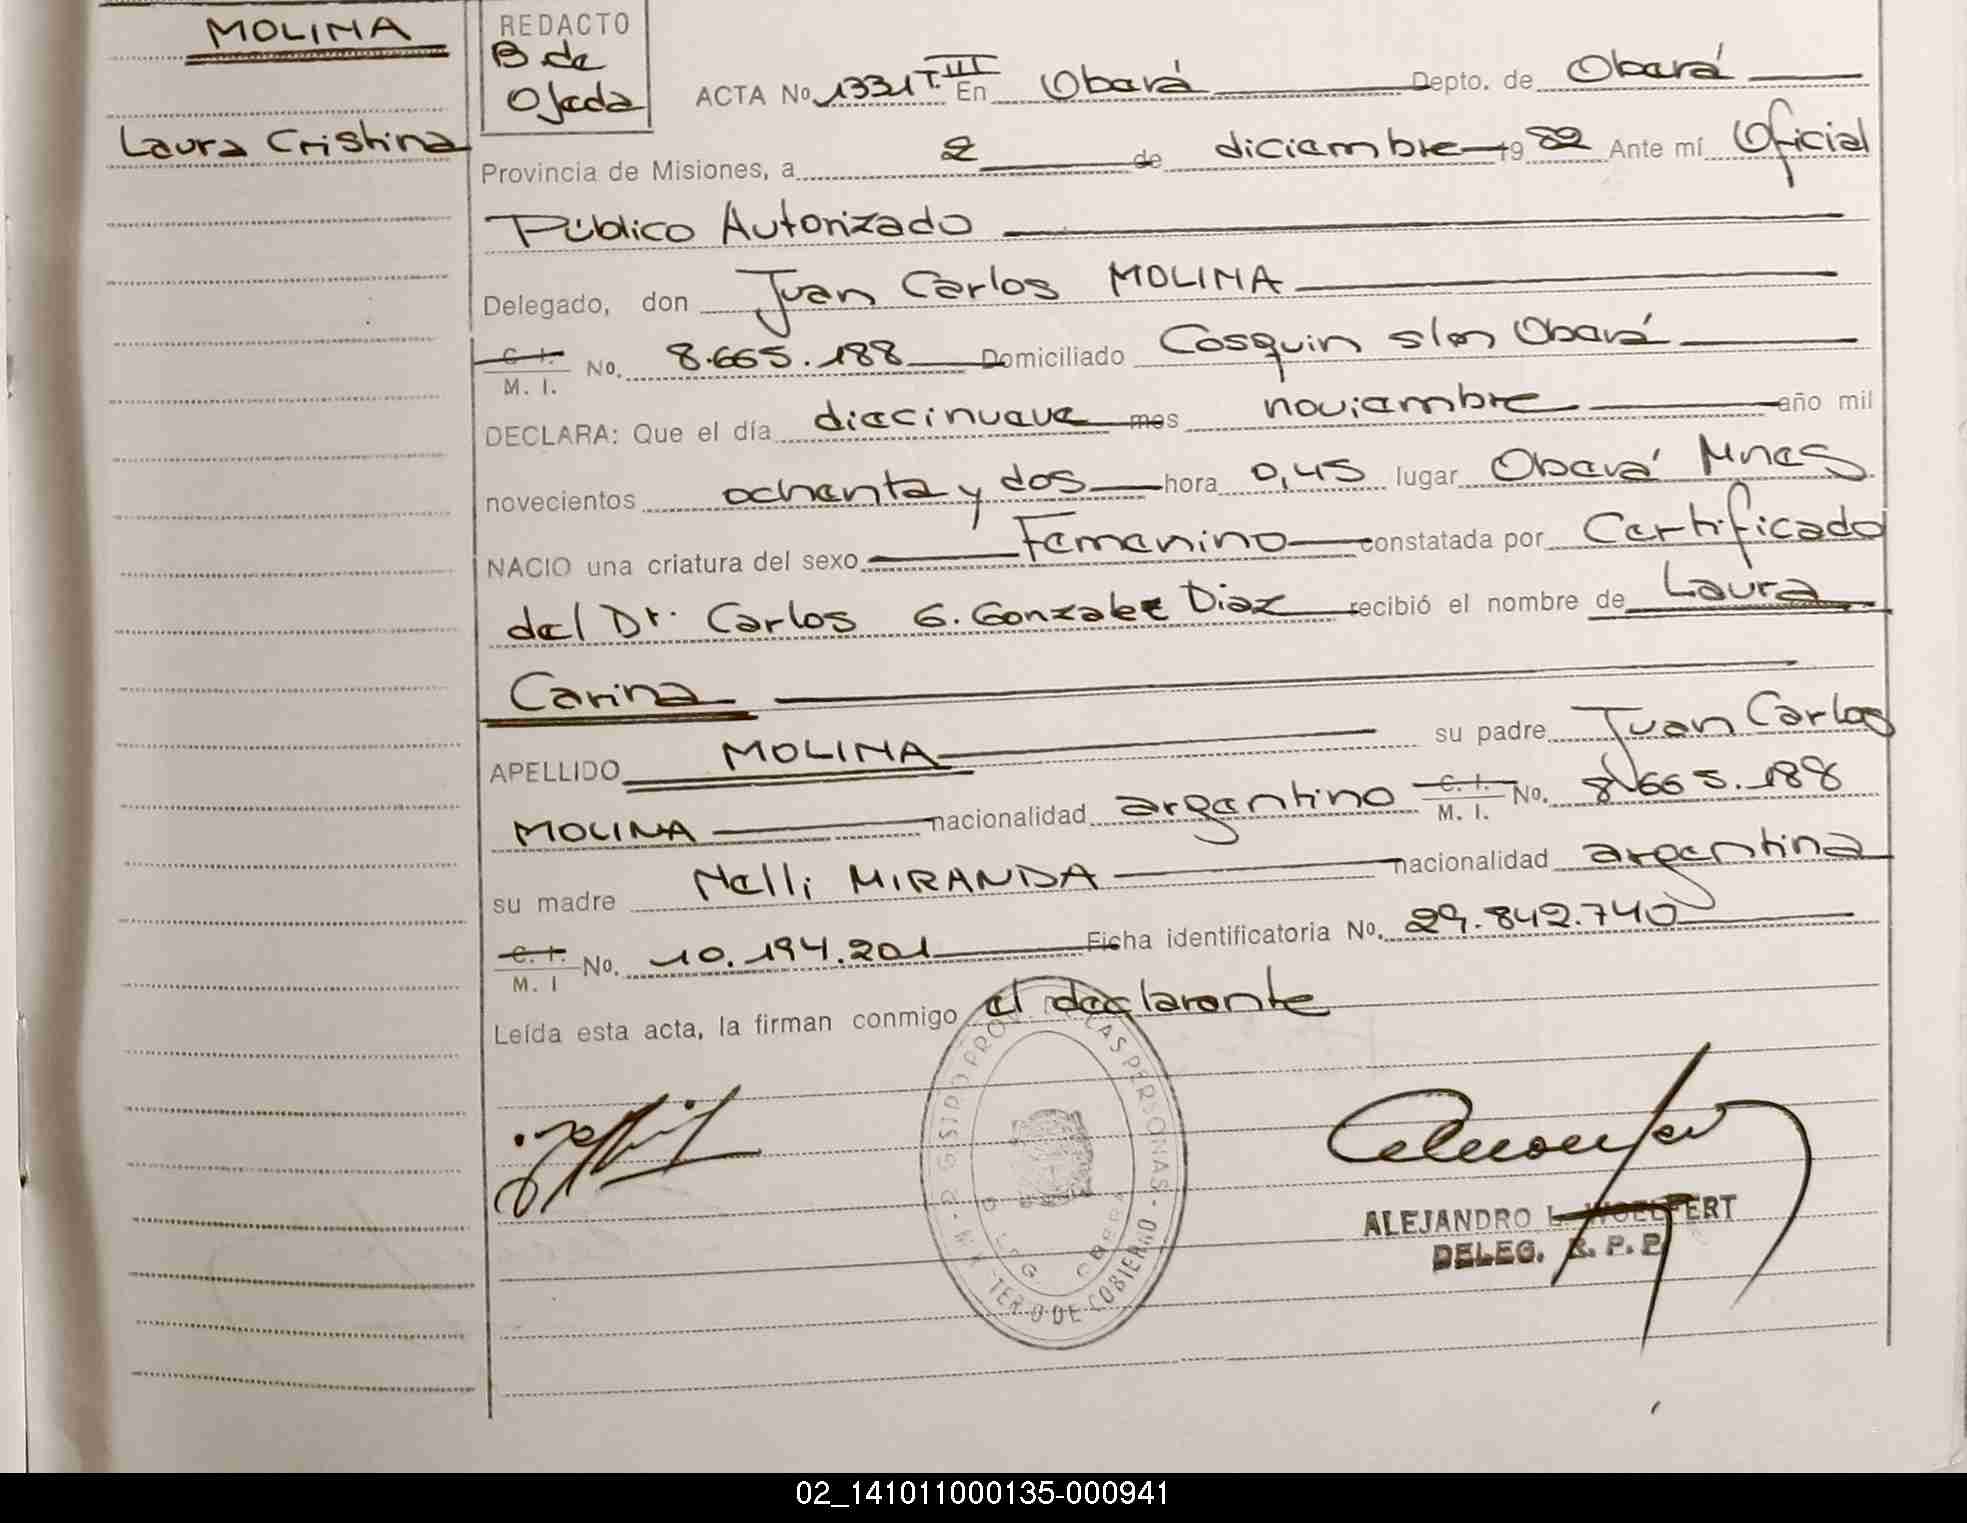 MOLINA
Laura Cristina
REDACTO
B de
Ojeda
ACTA No 1331 T. III En Oberá Depto. de Oberá
Provincia de Misiones, a 2 de diciembre 19 82 Ante mí Oficial
Público Autorizado
Delegado, don Juan Carlos MOLINA
C. I. M. I. No. 8.665.188 Domiciliado Cosquin s/n Oberá
DECLARA: Que el día diecinueve mes noviembre año mil
novecientos ochenta y dos hora 0,45 lugar Oberá Mnes
NACIO una criatura del sexo Femenino constatada por Certificado
del Dr. Carlos G. Gonzalez Diaz recibió el nombre de Laura
Carina
APELLIDO MOLINA su padre Juan Carlos
MOLINA nacionalidad argentino C. I. M. I. No. 8.665.188
su madre Nelli MIRANDA nacionalidad argentina
C. I. M. I No. 10.194.201 Ficha identificatoria No. 29.842.740
Leída esta acta, la firman conmigo el declarante
LAS PERSONAS
ALEJANDRO L. WOELFERT
DELEG. R. P. P.
02_141011000135-000941